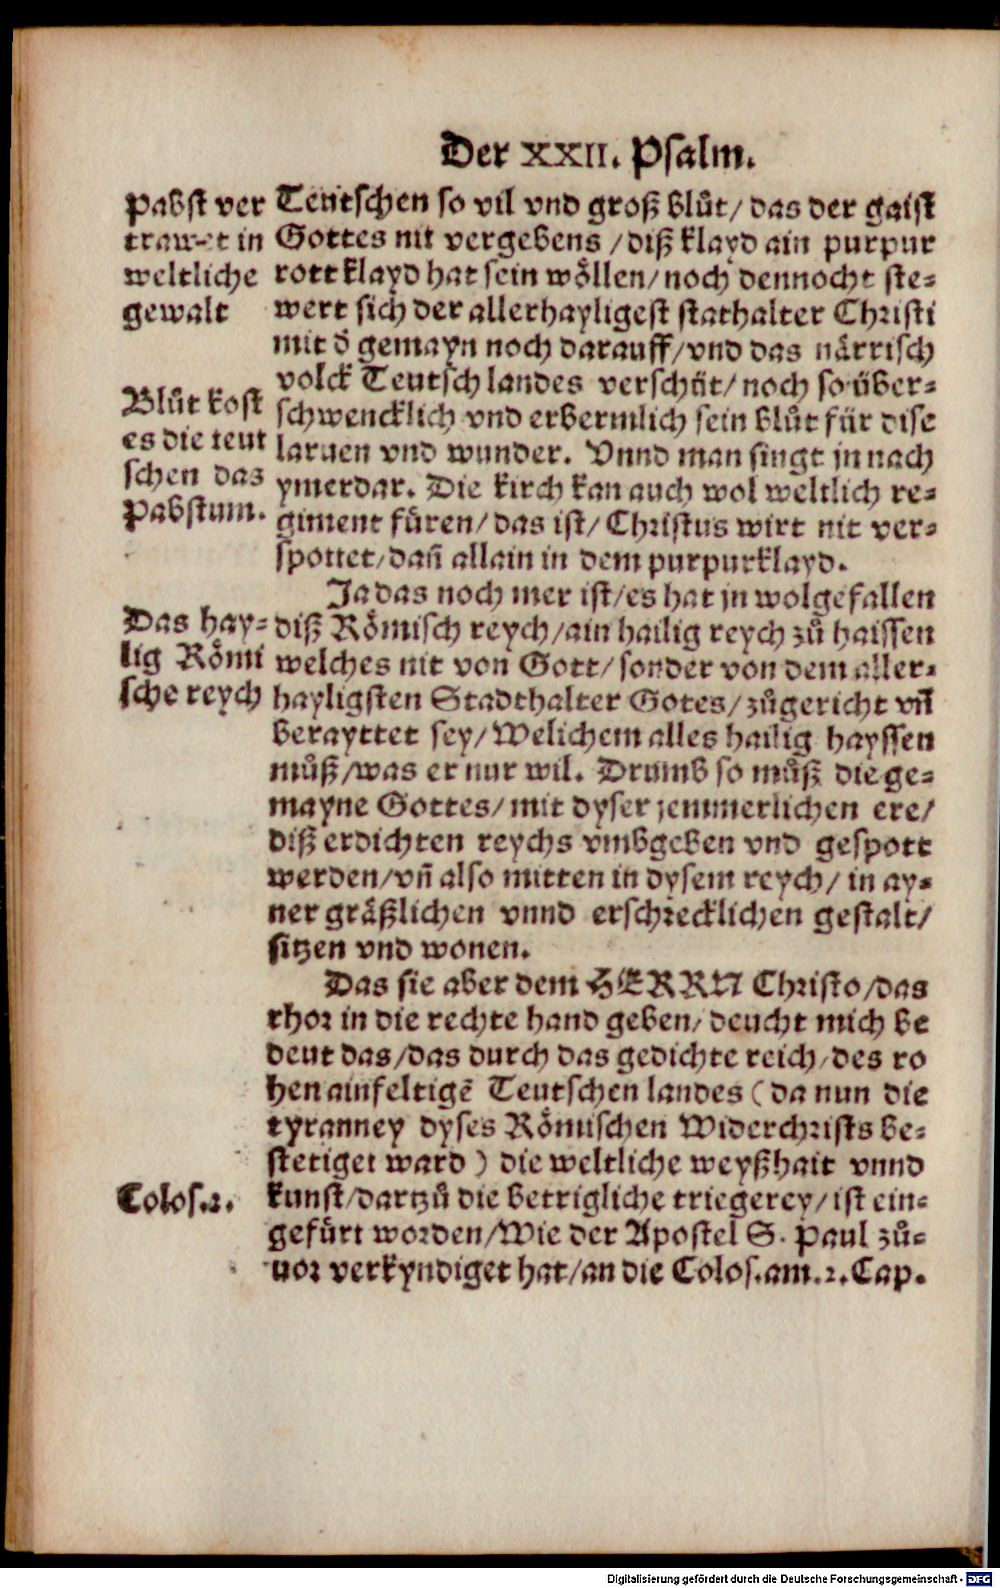 Der XXII. Psalm.
Pabst ver
trawet in
weltliche
gewalt
Blůt kost
es die teut
schen das
Pabstum.
Das hay-
lig Römi
sche reych
Colos.2.
Teütschen so vil vnd groß blůt/ das der gaist
Gottes nit vergebens /diß klayd ain purpur
rott klayd hat sein wöllen/ noch dennocht ste-
wert sich der allerhayligest stathalter Christi
mit d̕ gemayn noch darauff/ vnd das närrisch
volck Teutsch landes verschüt/ noch so über-
schwencklich vnd erbermlich sein blůt für dise
laruen vnd wunder. Vnnd man singt jn nach
ymerdar. Die kirch kan auch wol weltlich re-
giment füren/ das ist/ Christus wirt nit ver-
spottet/ dañ allain in dem purpurklayd.
Ja das noch mer ist/ es hat jn wolgefallen
diß Römisch reych/ ain hailig reych zů haissen
welches nit von Gott/ sonder von dem aller-
hayligsten Stadthalter Gotes/ zůgericht vñ
berayttet sey/ Welichem alles hailig hayssen
můß/ was er nur wil. Drumb so můß die ge-
mayne Gottes/ mit dyser jemmerlichen ere/
diß erdichten reychs vmbgeben vnd gespott
werden/ vñ also mitten in dysem reych/ in ay-
ner gräßlichen vnnd erschrecklichen gestalt/
sitzen vnd wonen.
Das sie aber dem HERRN Christo/ das
rhor in die rechte hand geben/ deucht mich be
deut das/ das durch das gedichte reich/ des ro
hen ainfeltigē Teutschen landes ( da nun die
tyranney dyses Römischen Widerchrists be-
stetiget ward ) die weltliche weyßhait vnnd
kunst/ dartzů die betrigliche triegerey/ ist ein-
gefürt worden/ Wie der Apostel S. Paul zů-
uor verkyndiget hat/ an die Colos. am .2. Cap.
Digitalisierung gefördert durch die Deutsche Forschungsgemeinschaft - DFG